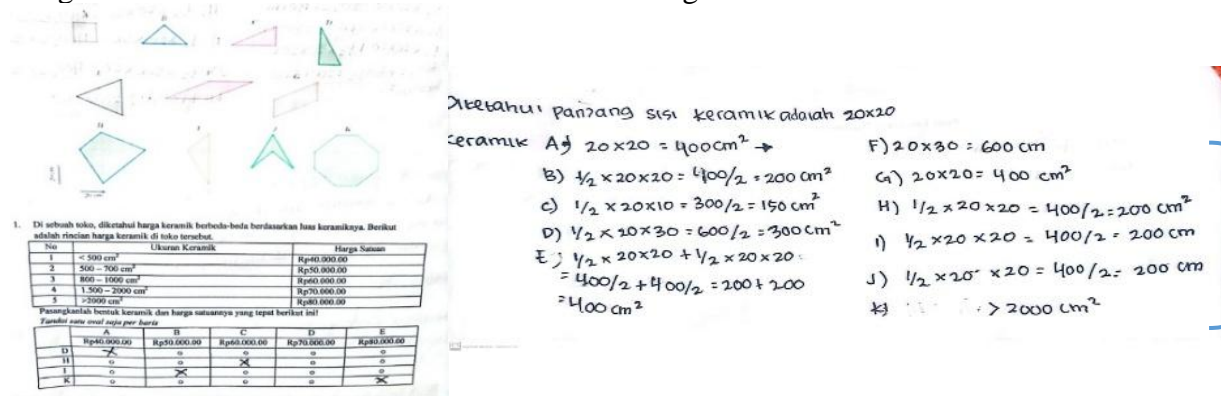 1. Di sebuah toko, diketahui harga keramik berbeda-beda berdasarkan luas keramiknya. Berikut
adalah rincian harga keramik di toko tersebut.
No Ukuran Keramik Harga Satuan
1 < 500 cm²  Rp40.000.00
2 500 – 700 cm² Rp50.000.00
3 800 – 1000 cm² Rp60.000.00
4 1.500 – 2000 cm² Rp70.000.00
5 >2000 cm² Rp80.000.00
Pasangkanlah bentuk keramik dan harga satuannya yang tepat berikut ini!
Tandai satu oval saja per baris
A B C D E
Rp40.000.00 Rp50.000.00 Rp60.000.00 Rp70.000.00 Rp80.000.00
D
H
I
K
Diketahui panjang sisi keramik adalah 20x20
keramik A) 20x20 = 400cm² →
B) 1/2 x 20x20 = 400/2 = 200 cm²
C) 1/2 x 20x10 = 300/2 = 150 cm²
D) 1/2 x 20x30 = 600/2 = 300cm²
E) 1/2 x 20x20 + 1/2 x 20x20
= 400/2 + 400/2 = 200 + 200
= 400 cm²
F) 20x30 = 600 cm
G) 20x20 = 400 cm²
H) 1/2 x 20x20 = 400/2 = 200 cm²
I) 1/2 x 20x20 = 400/2 = 200 cm
J) 1/2 x 20 x20 = 400/2 = 200 cm
K) > 2000 cm²